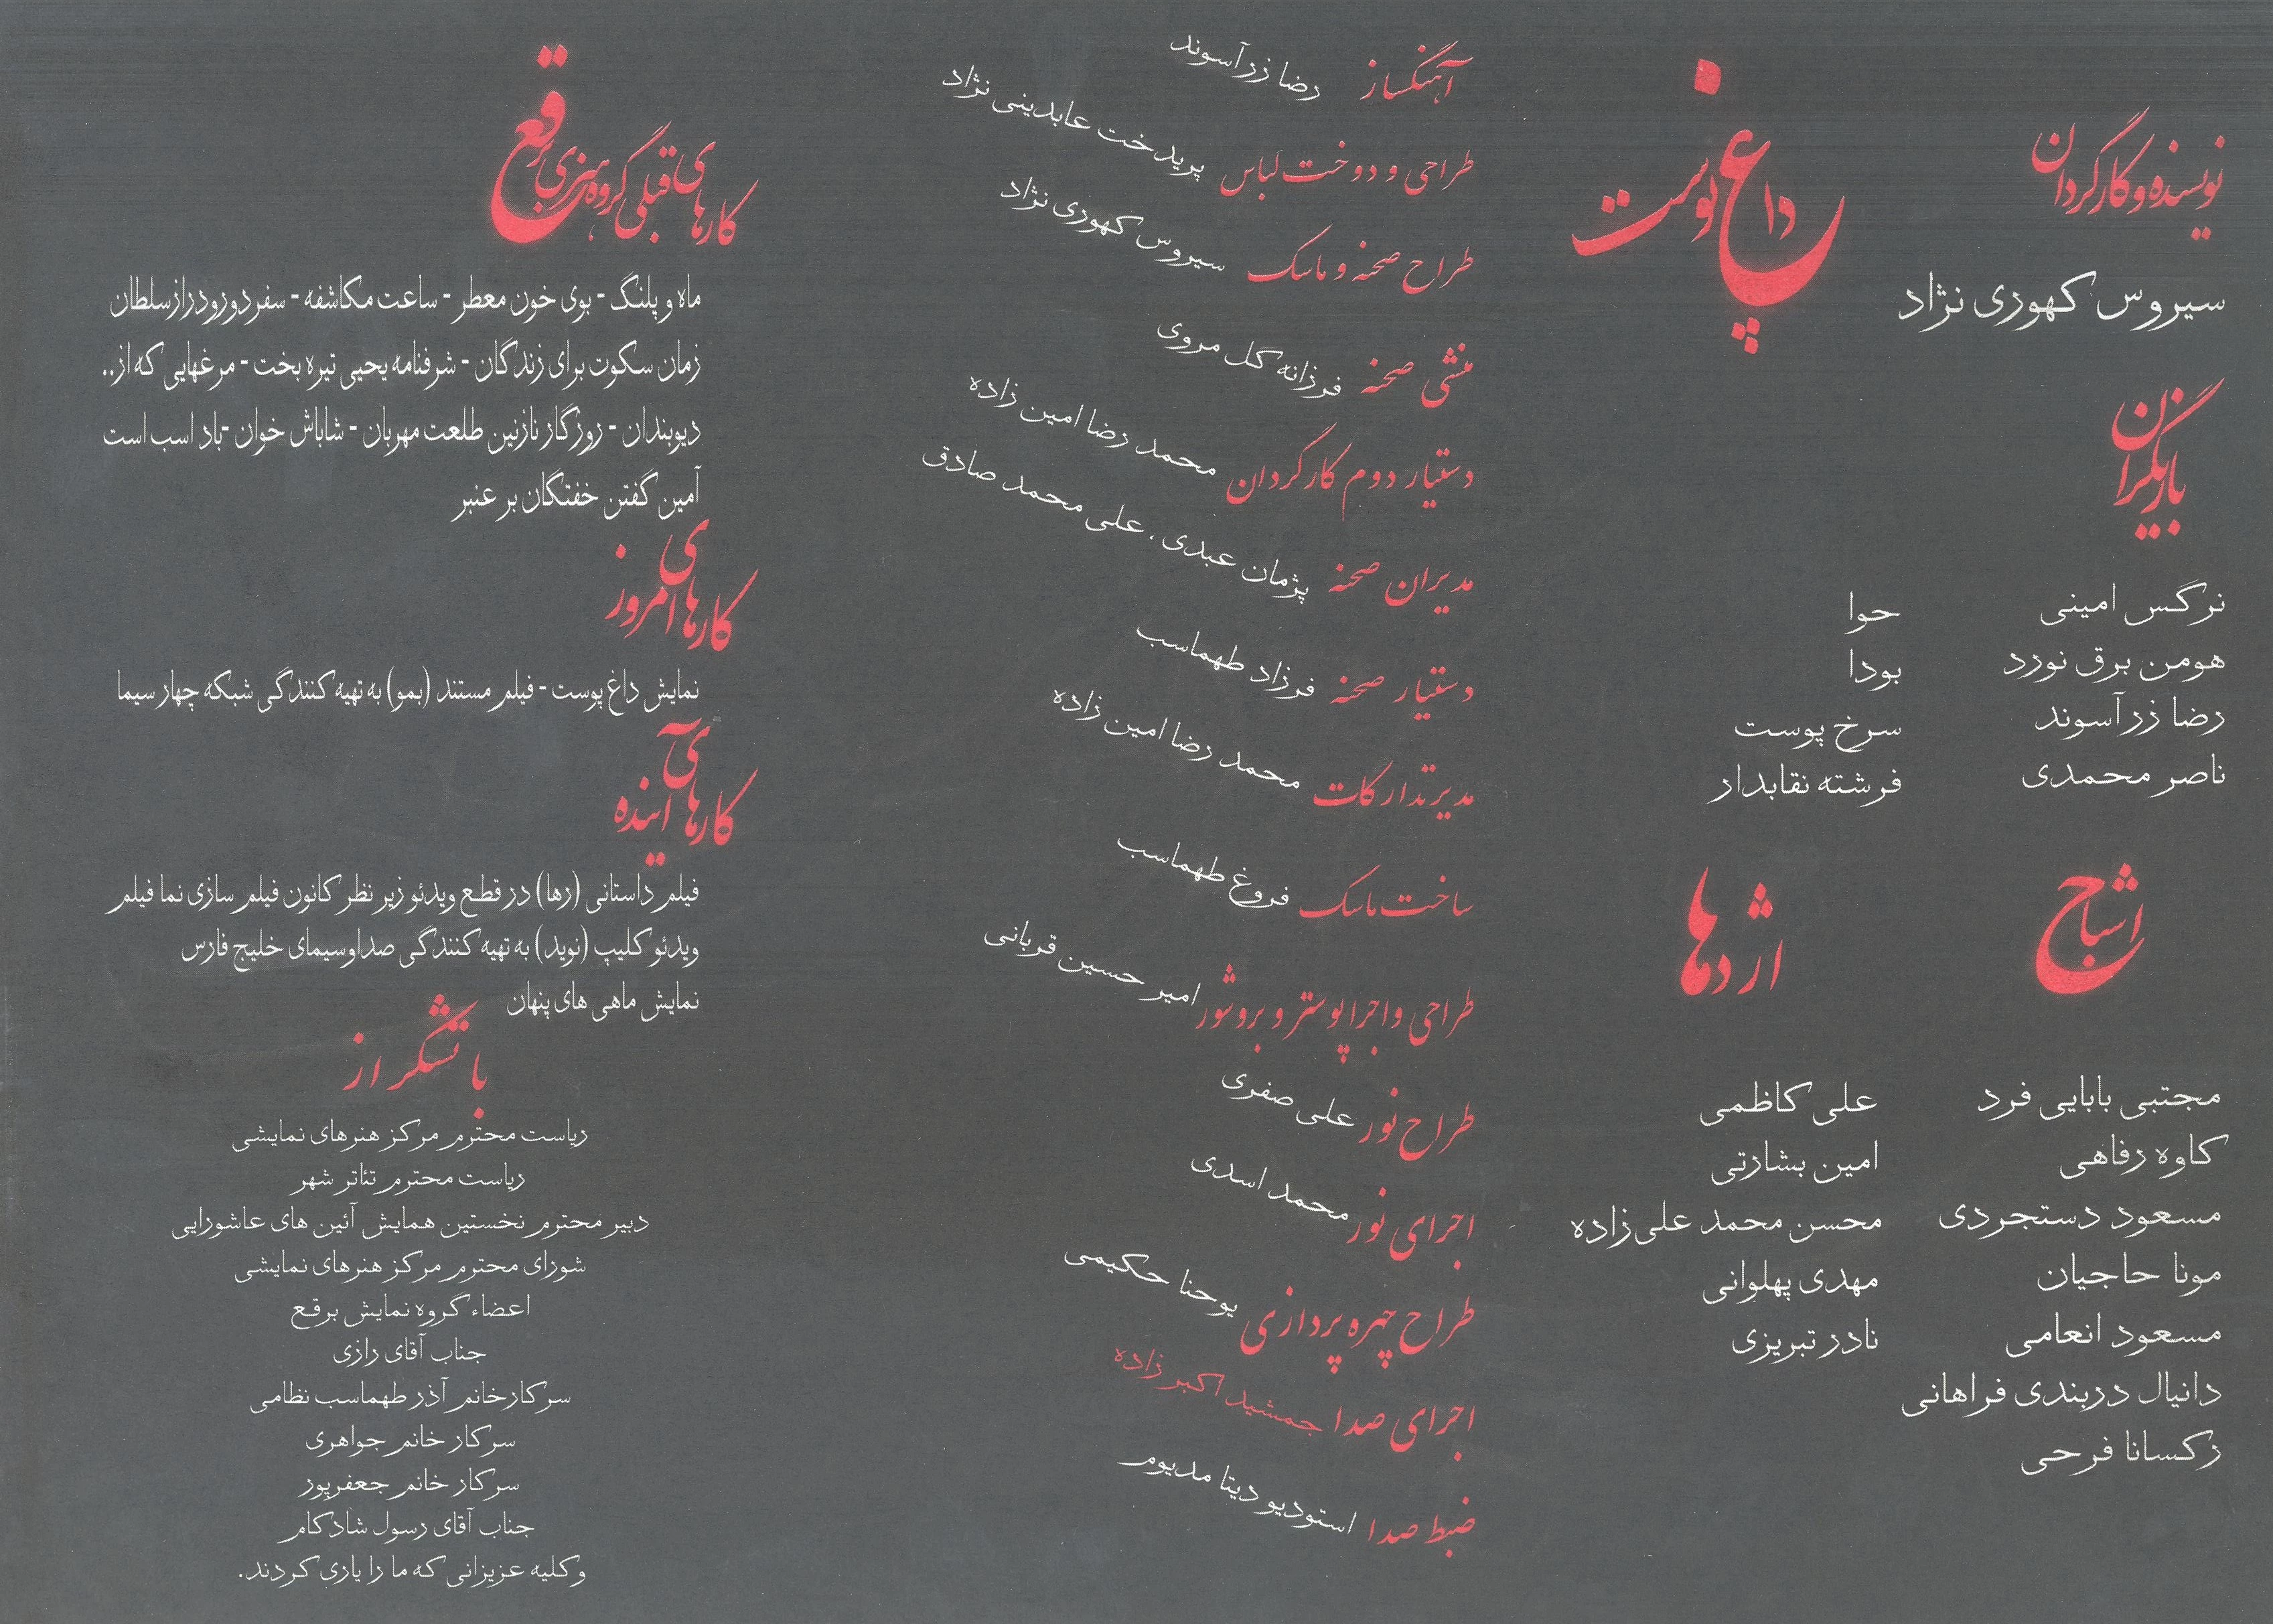 نویسنده و کارگردان
سیروس کهوری نژاد
داغ پوست
بازیگران
نرگس امینی حوا
هومن برق نورد بودا
رضا زرآسوند سرخ پوست
ناصر محمدی فرشته نقابدار
اشباح
مجتبی بابایی فرد
کاوه رفاهی
مسعود دستجردی
مونا حاجیان
مسعود انعامی
دانیال دربندی فراهانی
رکسانا فرحی
اژدها
علی کاظمی
امین بشارتی
محسن محمد علی‌زاده
مهدی پهلوانی
نادر تبریزی
آهنگساز رضا زرآسوند
طراحی و دوخت لباس پریدخت عابدینی نژاد
طراح صحنه و ماسک سیروس کهوری نژاد
منشی صحنه فرزانه گل مروی
دستیار دوم کارگردان محمد رضا امین زاده
مدیران صحنه پژمان عبدی، علی محمد صادق
دستیار صحنه فرزاد طهماسب
مدیر تدارکات محمد رضا امین زاده
ساخت ماسک فروغ طهماسب
طراحی و اجرا پوستر و بروشور امیر حسین قربانی
طراح نور علی صفری
اجرای نور محمد اسدی
طراح چهره پردازی یوحنا حکیمی
اجرای صدا جمشید اکبر زاده
ضبط صدا استودیو دیتا مدیوم
کارهای قبلی گروه هنری برقع
ماه و پلنگ - بوی خون معطر - ساعت مکاشفه - سفر دور و دراز سلطان
زمان سکوت برای زندگان - شرفنامه یحیی تیره بخت - مرغهایی که از..
دیوبندان - روزگار نازنین طلعت مهربان - شاباش خوان - باد اسب است
آمین گفتن خفتگان بر عنبر
کارهای امروز
نمایش داغ پوست - فیلم مستند (بمو) به تهیه کنندگی شبکه چهار سیما
کارهای آینده
فیلم داستانی (رها) در قطع ویدئو زیر نظر کانون فیلم سازی نما فیلم
ویدئو کلیپ (نوید) به تهیه کنندگی صدا و سیمای خلیج فارس
نمایش ماهی های پنهان
با تشکر از
ریاست محترم مرکز هنرهای نمایشی
ریاست محترم تئاتر شهر
دبیر محترم نخستین همایش آئین های عاشورایی
شورای محترم مرکز هنرهای نمایشی
اعضاء گروه نمایش برقع
جناب آقای رازی
سرکار خانم آذر طهماسب نظامی
سرکار خانم جواهری
سرکار خانم جعفرپور
جناب آقای رسول شادکام
و کلیه عزیزانی که ما را یاری کردند.